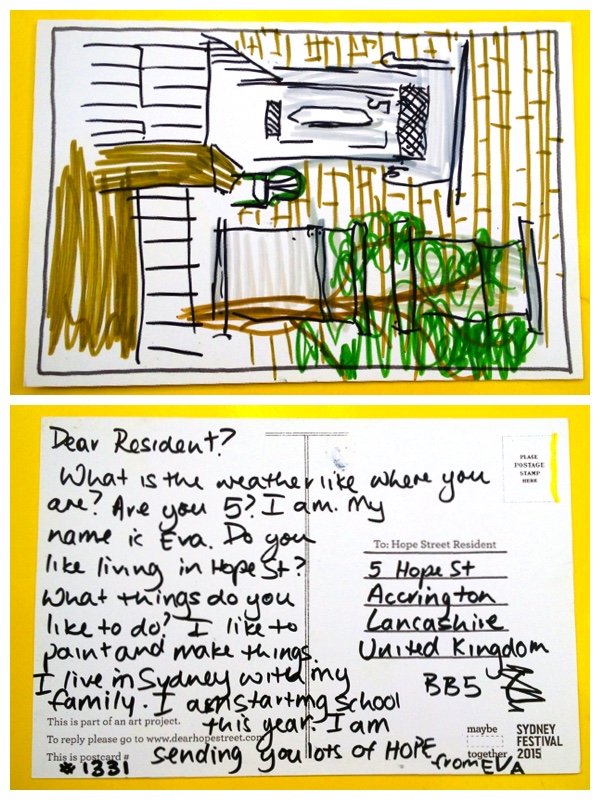 5
5
Dear Resident?
What is the weather like where you
are? Are you 5? I am. My
name is Eva. Do you
like living in Hope St?
What things do you
like to do? I like to
paint and make things.
I live in Sydney with my
family. I am starting School
this year. I am
sending you lots of HOPE
from EVA
This is part of an art project.
To reply please go to www.dearhopestreet.com
This is postcard #
#1331
PLACE
POSTAGE
STAMP
HERE
To: Hope Street Resident
5 Hope St
Accrington
Lancashire
United Kingdom
BB5
maybe
together
SYDNEY
FESTIVAL
2015